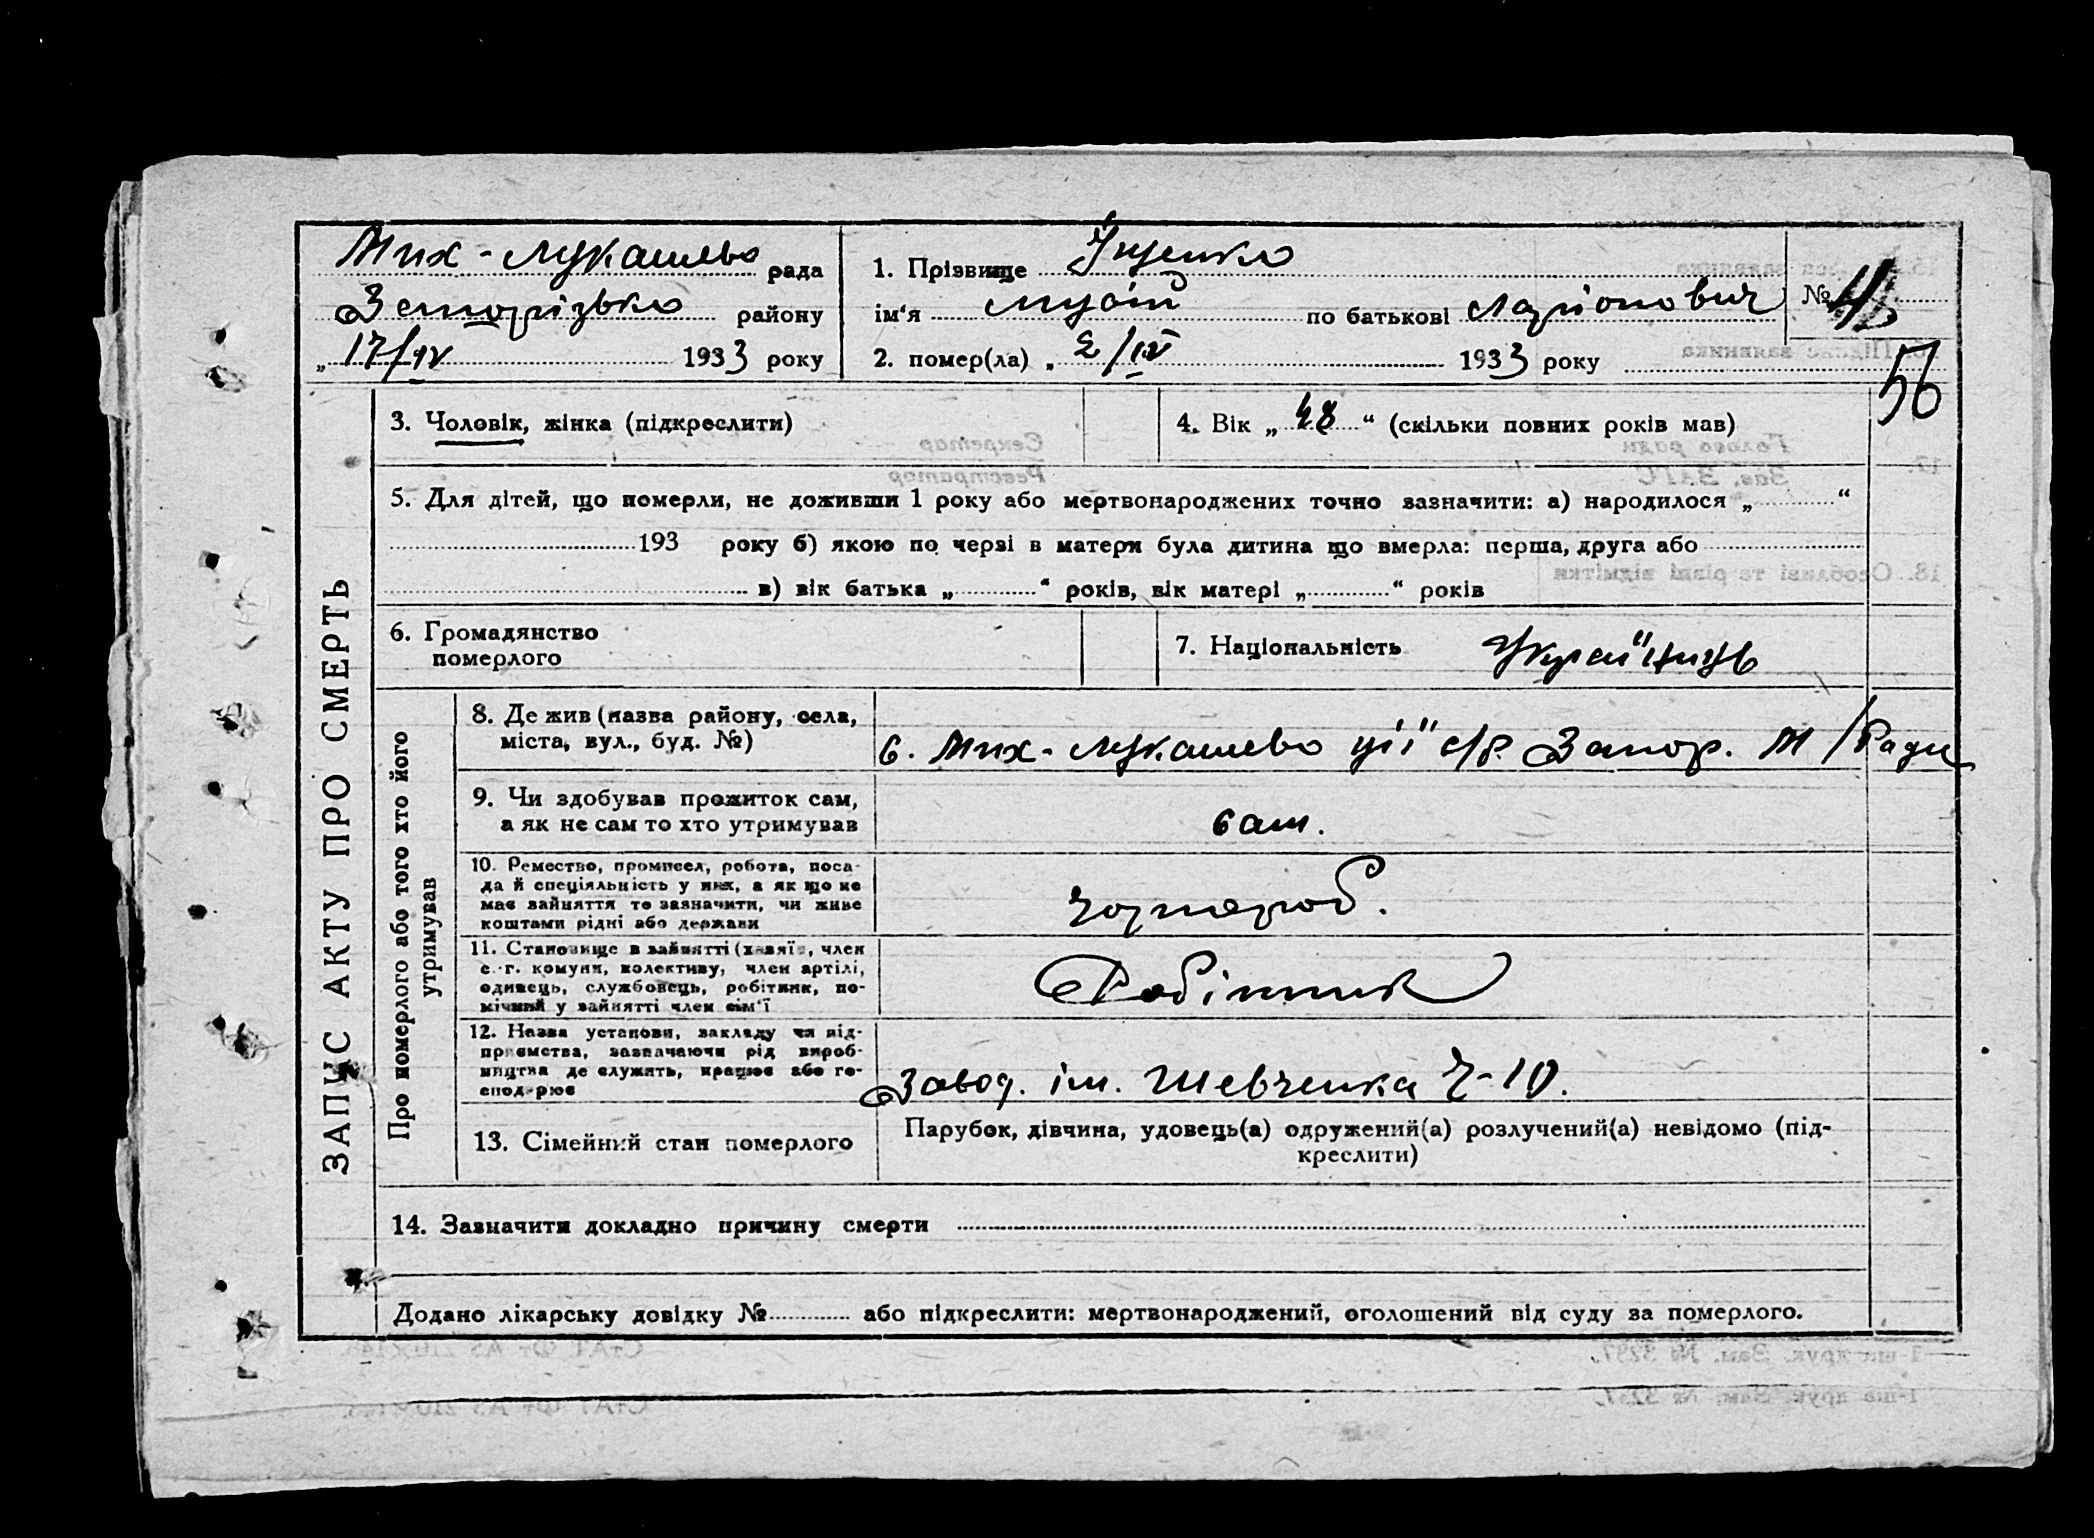 Мих-Лукашево рада
Запорізько району
„ 17/IV 1933 року
1. Прізвище Іщенко
ім'я Мусій по батькові Ларіонович
2. помер(ла) „ 2/IV 1933 року
№
56
ЗАПИС АКТУ ПРО СМЕРТЬ
3. Чоловік, жінка (підкреслити)
4. Вік „ 48 “ (скільки повних років мав)
5. Для дітей, що померли, не доживши 1 року або мертвонароджених точно зазначити: а) народилося „ “
193 року б) якою по черзі в матери була дитина що вмерла: перша, друга або
в) вік батька „ “ років, вік матері „ “ років
6. Громадянство
померлого
7. Національність Українець
Про померлого або того хто його
утримував
8. Де жив (назва району, села,
міста, вул., буд. №)
с. Мих-Лукашево ції с/р. Запор. М/Ради
9. Чи здобував прожиток сам,
а як не сам то хто утримував
сам.
10. Ремество, промисел, робота, поса-
да й спеціяльність у них, а як що не
має зайняття то зазначити, чи живе
коштами рідні або держави
чорнороб.
11. Становище в зайнятті (хазяїн, член
с.-г. комуни, колективу, член артілі,
одинець, службовець, робітник, по-
мічний у зайнятті член сім'ї
Робітник
12. Назва установи, закладу чи під-
приємства, зазначаючи рід вироб-
ництва де служить, працює або го-
сподарює
Завод. ім. Шевченка Ч-10.
13. Сімейний стан померлого
Парубок, дівчина, удовець(а) одружений(а) розлучений(а) невідомо (під-
креслити)
14. Зазначити докладно причину смерти
Додано лікарську довідку № або підкреслити: мертвонароджений, оголошений від суду за померлого.